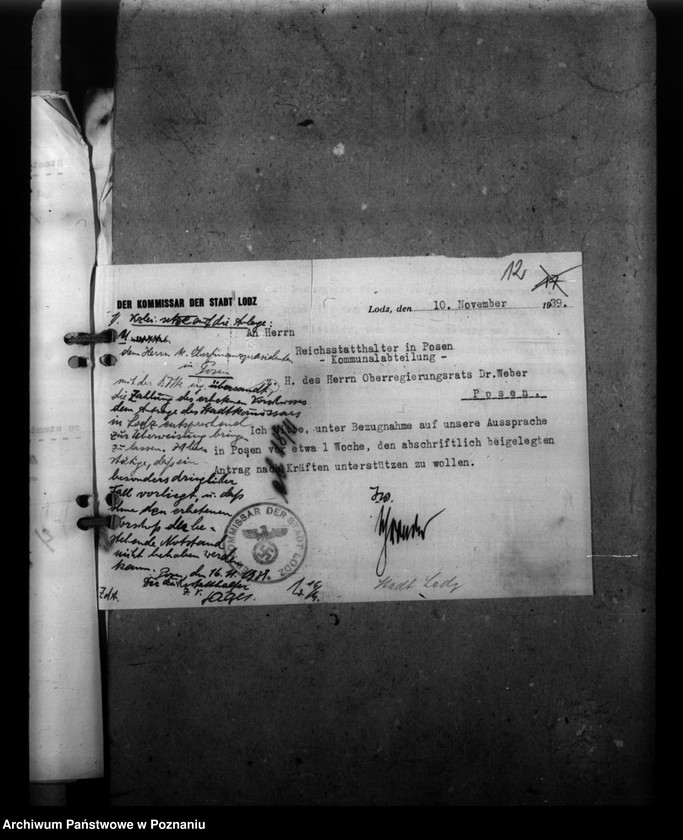 12
17
DER KOMMISSAR DER STADT LODZ
Lodz, den 10. November 1939.
An Herrn
Reichsstatthalter in Posen
- Kommunalabteilung -
z. H. des Herrn Oberregierungsrats Dr.Weber
Posen.
Ich bitte, unter Bezugnahme auf unsere Aussprache
in Posen vor etwa 1 Woche, den abschriftlich beigelegten
Antrag nach Kräften unterstützen zu wollen.
auf die Anlage:
dem Herrn Oberfinanzpräsidenten
in Posen
mit der Bitte erg. übersandt,
die Zahlung des erbetenen Vorschusses
dem Antrage des Stadtkommissars
in Lodz entsprechend
zur Überweisung bringen
zu lassen. Ich be-
stätige, daß ein
besonders dringlicher
Fall vorliegt, u. daß
ohne den erbetenen
Vorschuß der be-
stehende Notstand
nicht behoben werden
kann. Posen, den 16. 11. 1939.
Der Reichsstatthalter
KOMMISSAR DER STADT LODZ
Stadt Lodz
Archiwum Państwowe w Poznaniu